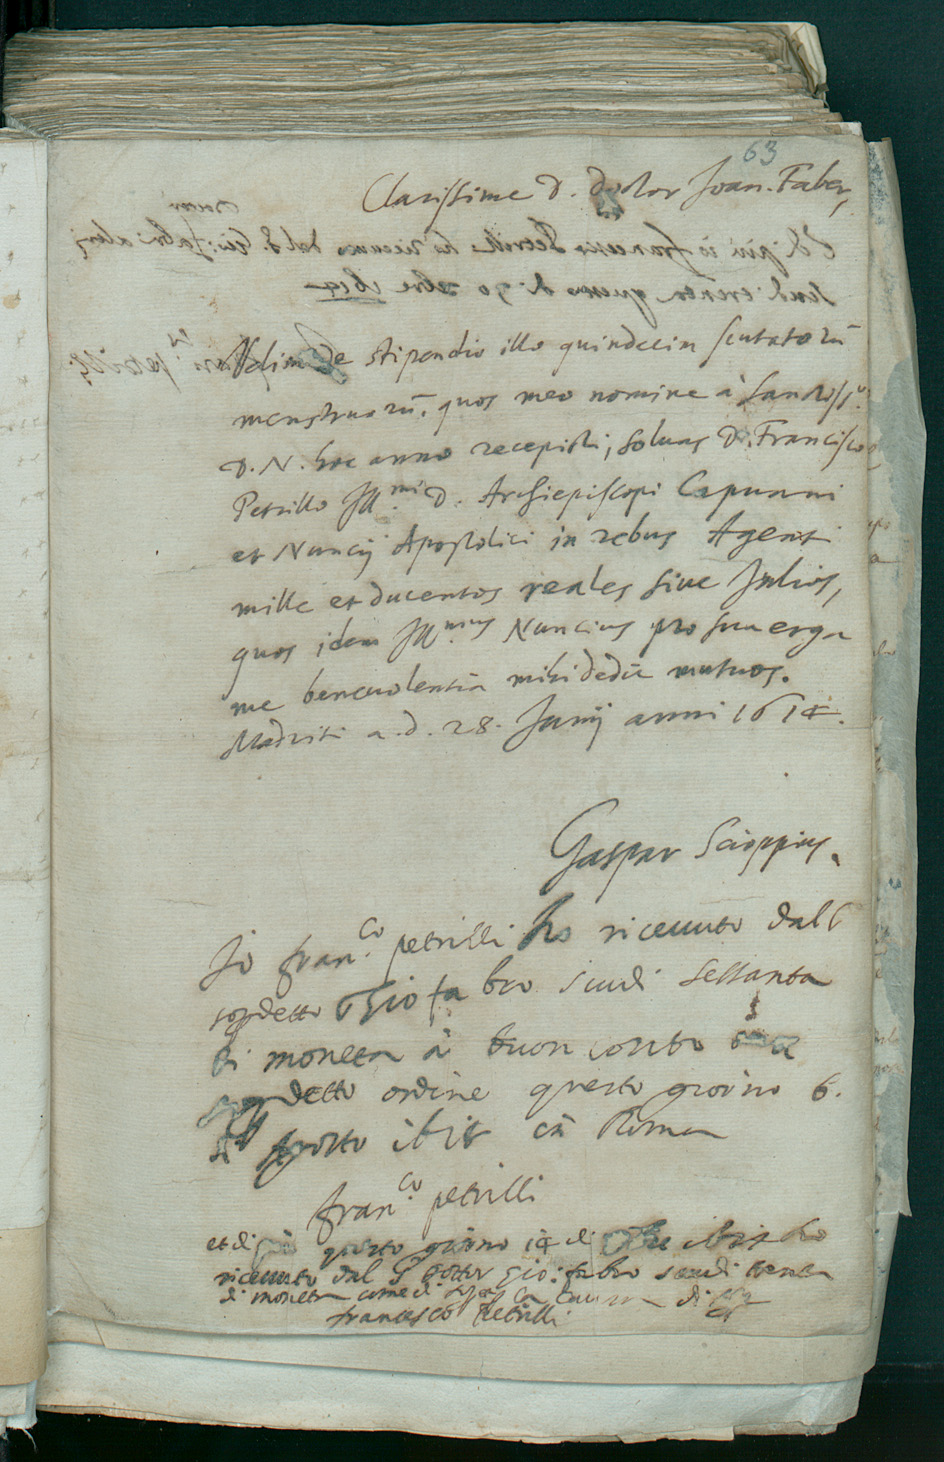 63
Clarissime D. Doctor Joan. Faber,
Velim de stipendio illo quindecim scutatorū
menstruorū, quos meo nomine à Sanctiss.o
D. N. hoc anno recepisti, solvas D. Francisco
Petrillo Ill.mi D. Archiepiscopi Capuani
et Nuncij Apostolici in rebus Agenti
mille et ducentos reales sive Julios,
quos idem Ill.mus Nuncius pro sua erga
me benevolentia mihi dedit mutuos.
Madriti a. d. 28. Junij anni 1614.
Gaspar Scioppius.
Io fran.co petrilli ho riceuuto dall
sopdetto Gio fabro scudi sessanta
di moneta à buon conto
detto ordine questo giorno 6.
Agosto 1614 in Roma
fran.co petrilli
et di più questo giorno 14 di 1614 ho
riceuuto dal S.r dottor Gio: fabro scudi trenta
di moneta come di sopra
francesco Petrilli